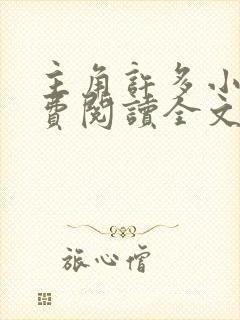 主角許多小
費閱讀全文
旅心僧